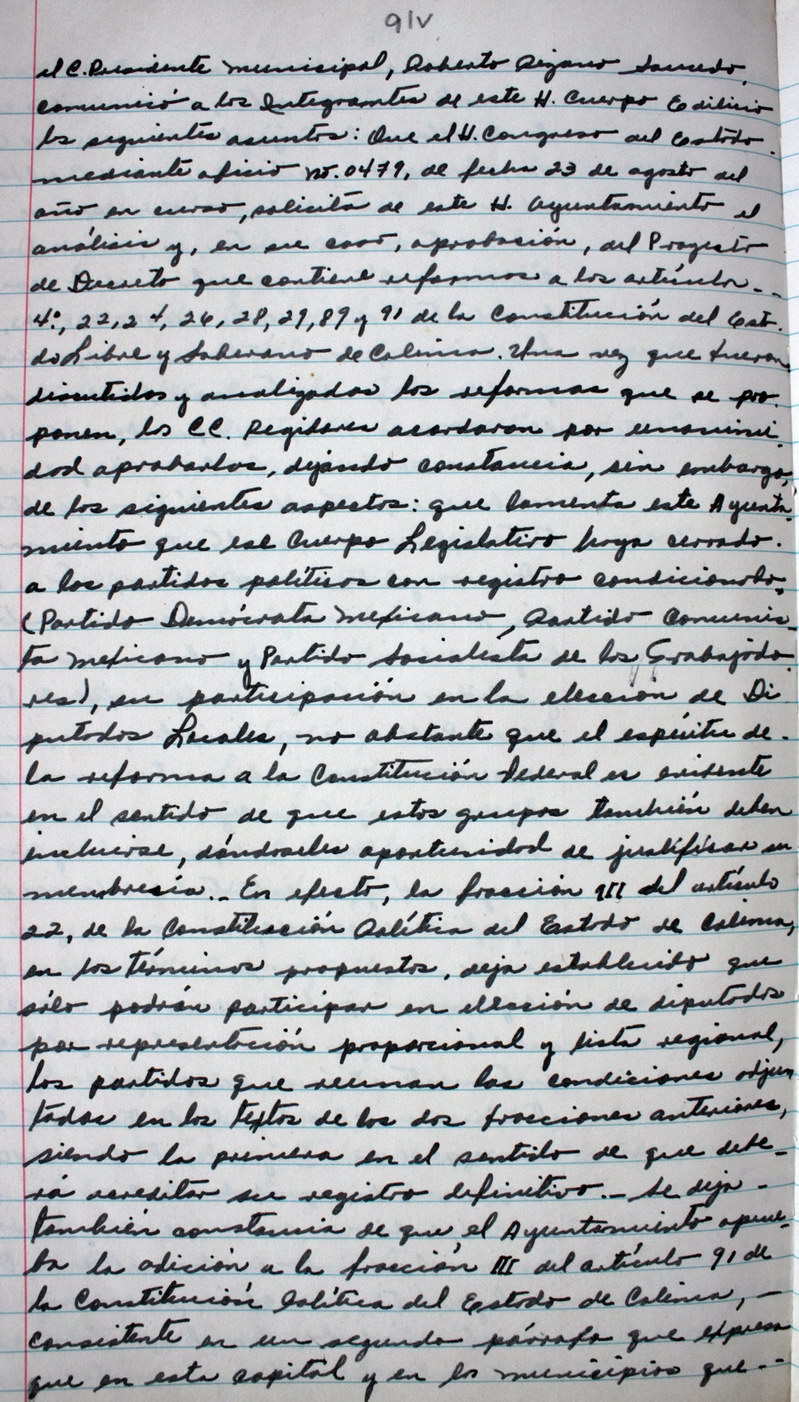 91v
el C. Presidente Municipal, Roberto Pizano Saucedo,
comunicó a los Integrantes de este H. Cuerpo Edilicio
los siguientes asuntos: Que el H. Congreso del Estado
mediante oficio No. 0479, de fecha 23 de agosto del
año en curso, solicita de este H. Ayuntamiento el
análisis y, en su caso, aprobación, del Proyecto
de Decreto que contiene reformas a los artículos--
4º, 22, 24, 26, 28, 29, 89 y 91 de la Constitución del Esta-
do Libre y Soberano de Colima. Una vez que fueron
discutidas y analizadas las reformas que se pro-
ponen, los CC. Regidores acordaron por unanimi-
dad aprobarlas, dejando constancia, sin embargo,
de los siguientes aspectos: que lamenta este Ayunta-
miento que ese Cuerpo Legislativo haya cerrado-
a los partidos políticos con registro condicionado-
(Partido Demócrata Mexicano, Partido Comunis-
ta Mexicano y Partido Socialista de los Trabajado-
res), su participación en la elección de Di-
putados Locales, no obstante que el espíritu de-
la reforma a la Constitución Federal es evidente
en el sentido de que estos grupos también deben
incluirse, dándoseles oportunidad de justificar su
membresía.- En efecto, la fracción III del artículo
22, de la Constitución Política del Estado de Colima,
en los términos propuestos, deja establecido que
sólo podrán participar en elección de diputados
por representación proporcional y lista regional,
los partidos que reunan las condiciones adjun
tadas en los textos de las dos fracciones anteriores,
siendo la primera en el sentido de que debe-
rá acreditar su registro definitivo.- Se deja-
también constancia de que el Ayuntamiento aprue-
ba la adición a la fracción III del artículo 91 de
la Constitución Política del Estado de Colima, -
consistente en un segundo párrafo que expresa
que en esta capital y en los municipios que--